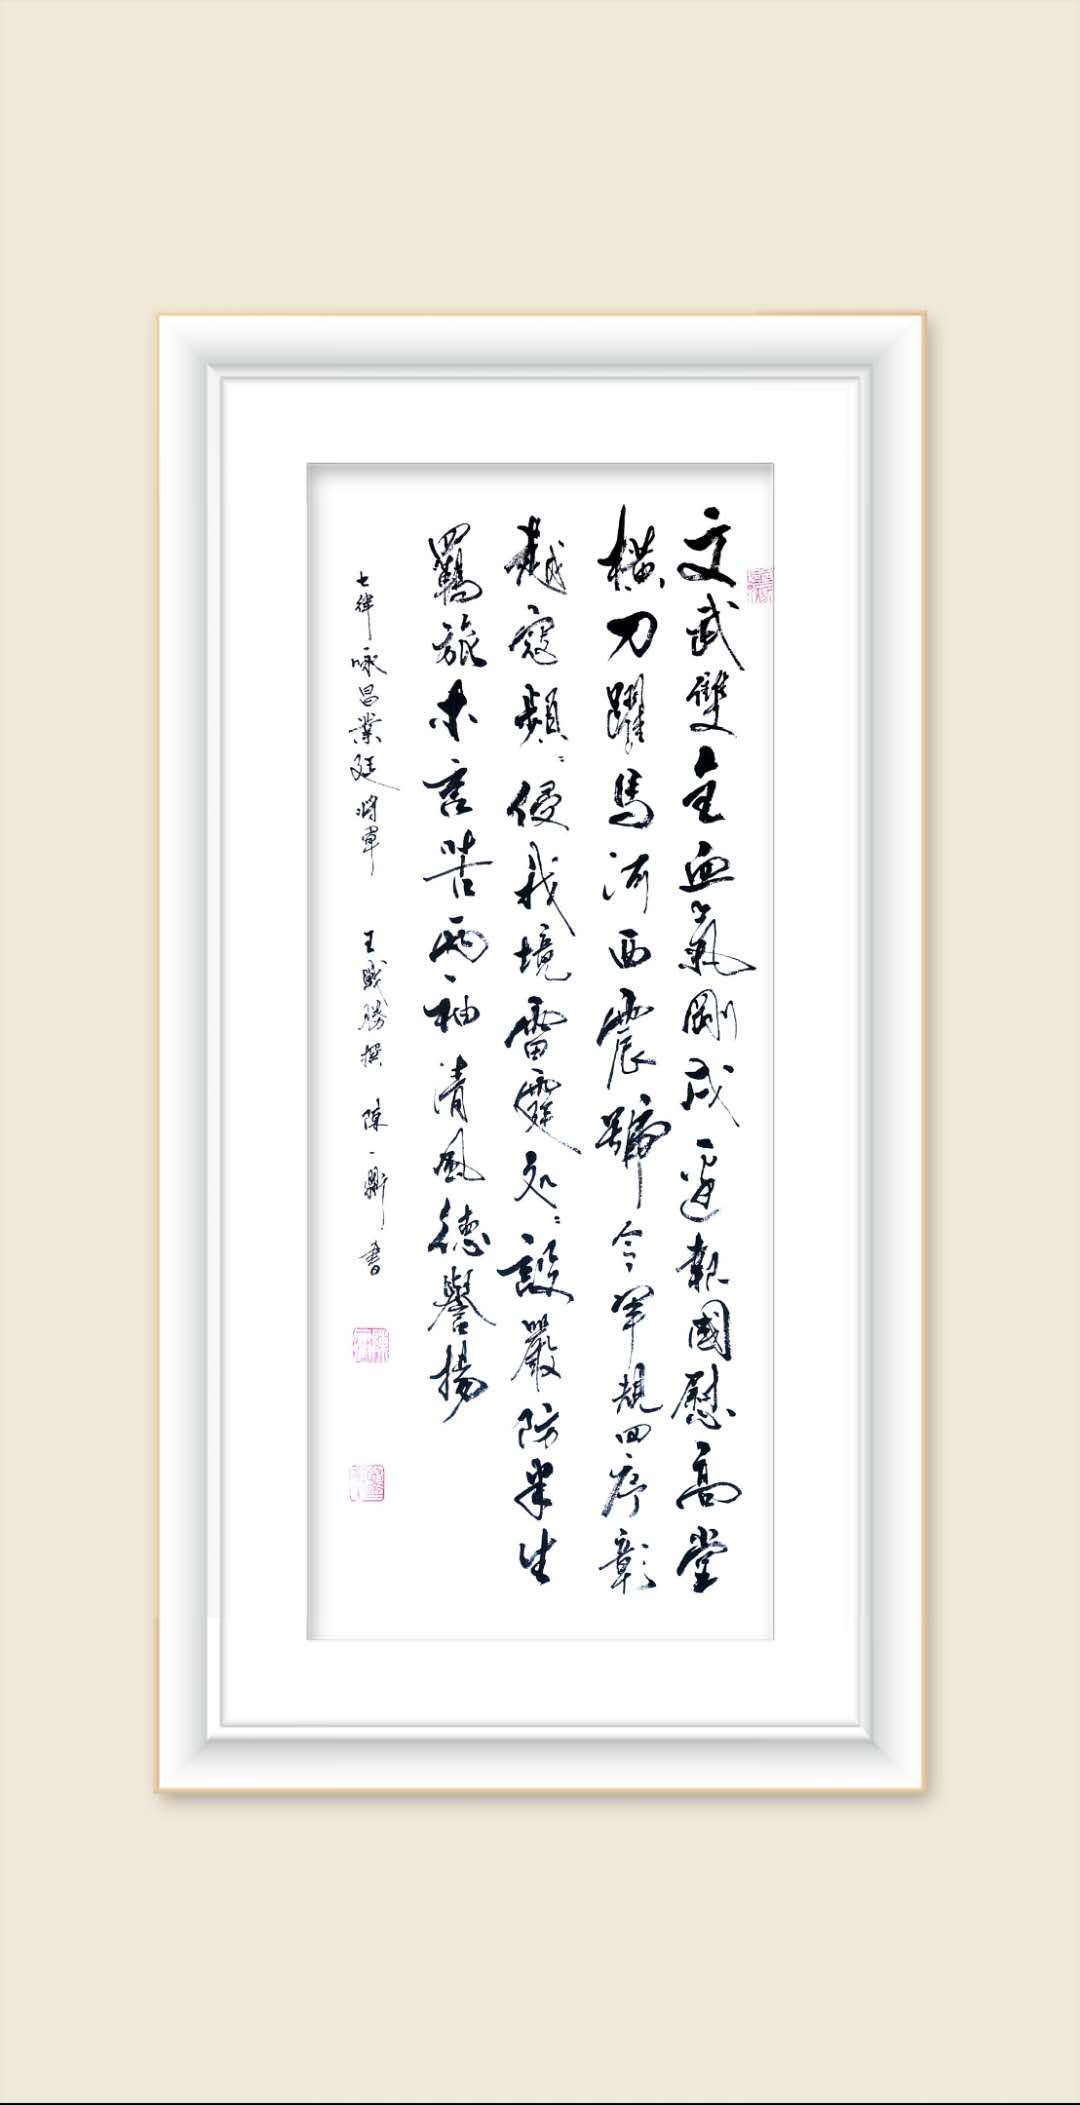 文武雙全血氣剛戍邊報國慰高堂
橫刀躍馬河西震號令軍規四序彰
越寇頻〻侵我境雷霆処〻設嚴防半生
羈旅未言苦兩袖清風德譽揚
七律 咏昌業廷將軍 王勝撰 陳一鼎書